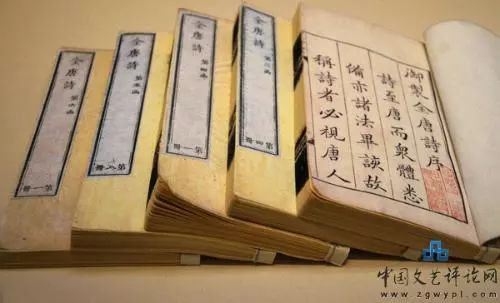 御製全唐詩序
詩至唐而衆體悉
備亦諸法畢該故
稱詩者必視唐人
全唐詩
第三函
第四冊
全唐詩
第四函
第一冊
全唐詩
第五函
全唐詩
第六函
第一冊
中国文艺评论网
www.zgwypl.com